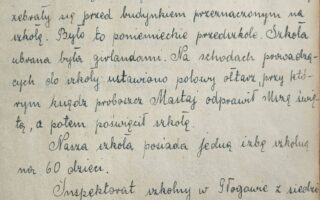 zebrały się przed budynkiem przeznaczonym na
szkołę. Było to poniemieckie przedszkole. Szkoła
ubrana była girlandami. Na schodach prowadzą-
cych do szkoły ustawiono polowy ołtarz, przy któ-
rym ksiądz proboszcz Maślaj odprawił Mszę świę-
tą, a potem poświęcił szkołę.
Nasza szkoła posiada jedną izbę szkolną
na 60 dzieci.
Inspektorat szkolny w Głogowie z siedzi